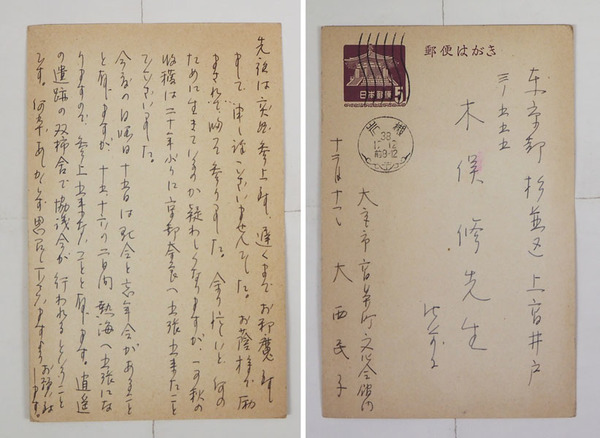 先夜は突然参上致し、遅くまでお邪魔致し
まして、申し訳ございませんでした。お蔭様で励
まされて帰って参りました。余り忙しいと、何の
ために生きているのか疑わしくなりますが、この秋の
収穫は二十一年ぶりに京都奈良へ出張出来たこと
でございました。
今度の日曜十五日は例会と忘年会があること
と存じますが、十五十六の二日間熱海へ出張にな
りますので、参上出来ないことと存じます。逍遥
の遺跡の双柿舎で協議会が行われるということ
です。何卒あしからず思召し下さいますようお願い致
します。
郵便はがき
日本郵便
5
38
前8-12
東京都杉並区上高井戸
三ノ五五五
木俣修先生
大宮市宮本町文化会館内
十二月十一日 大西民子